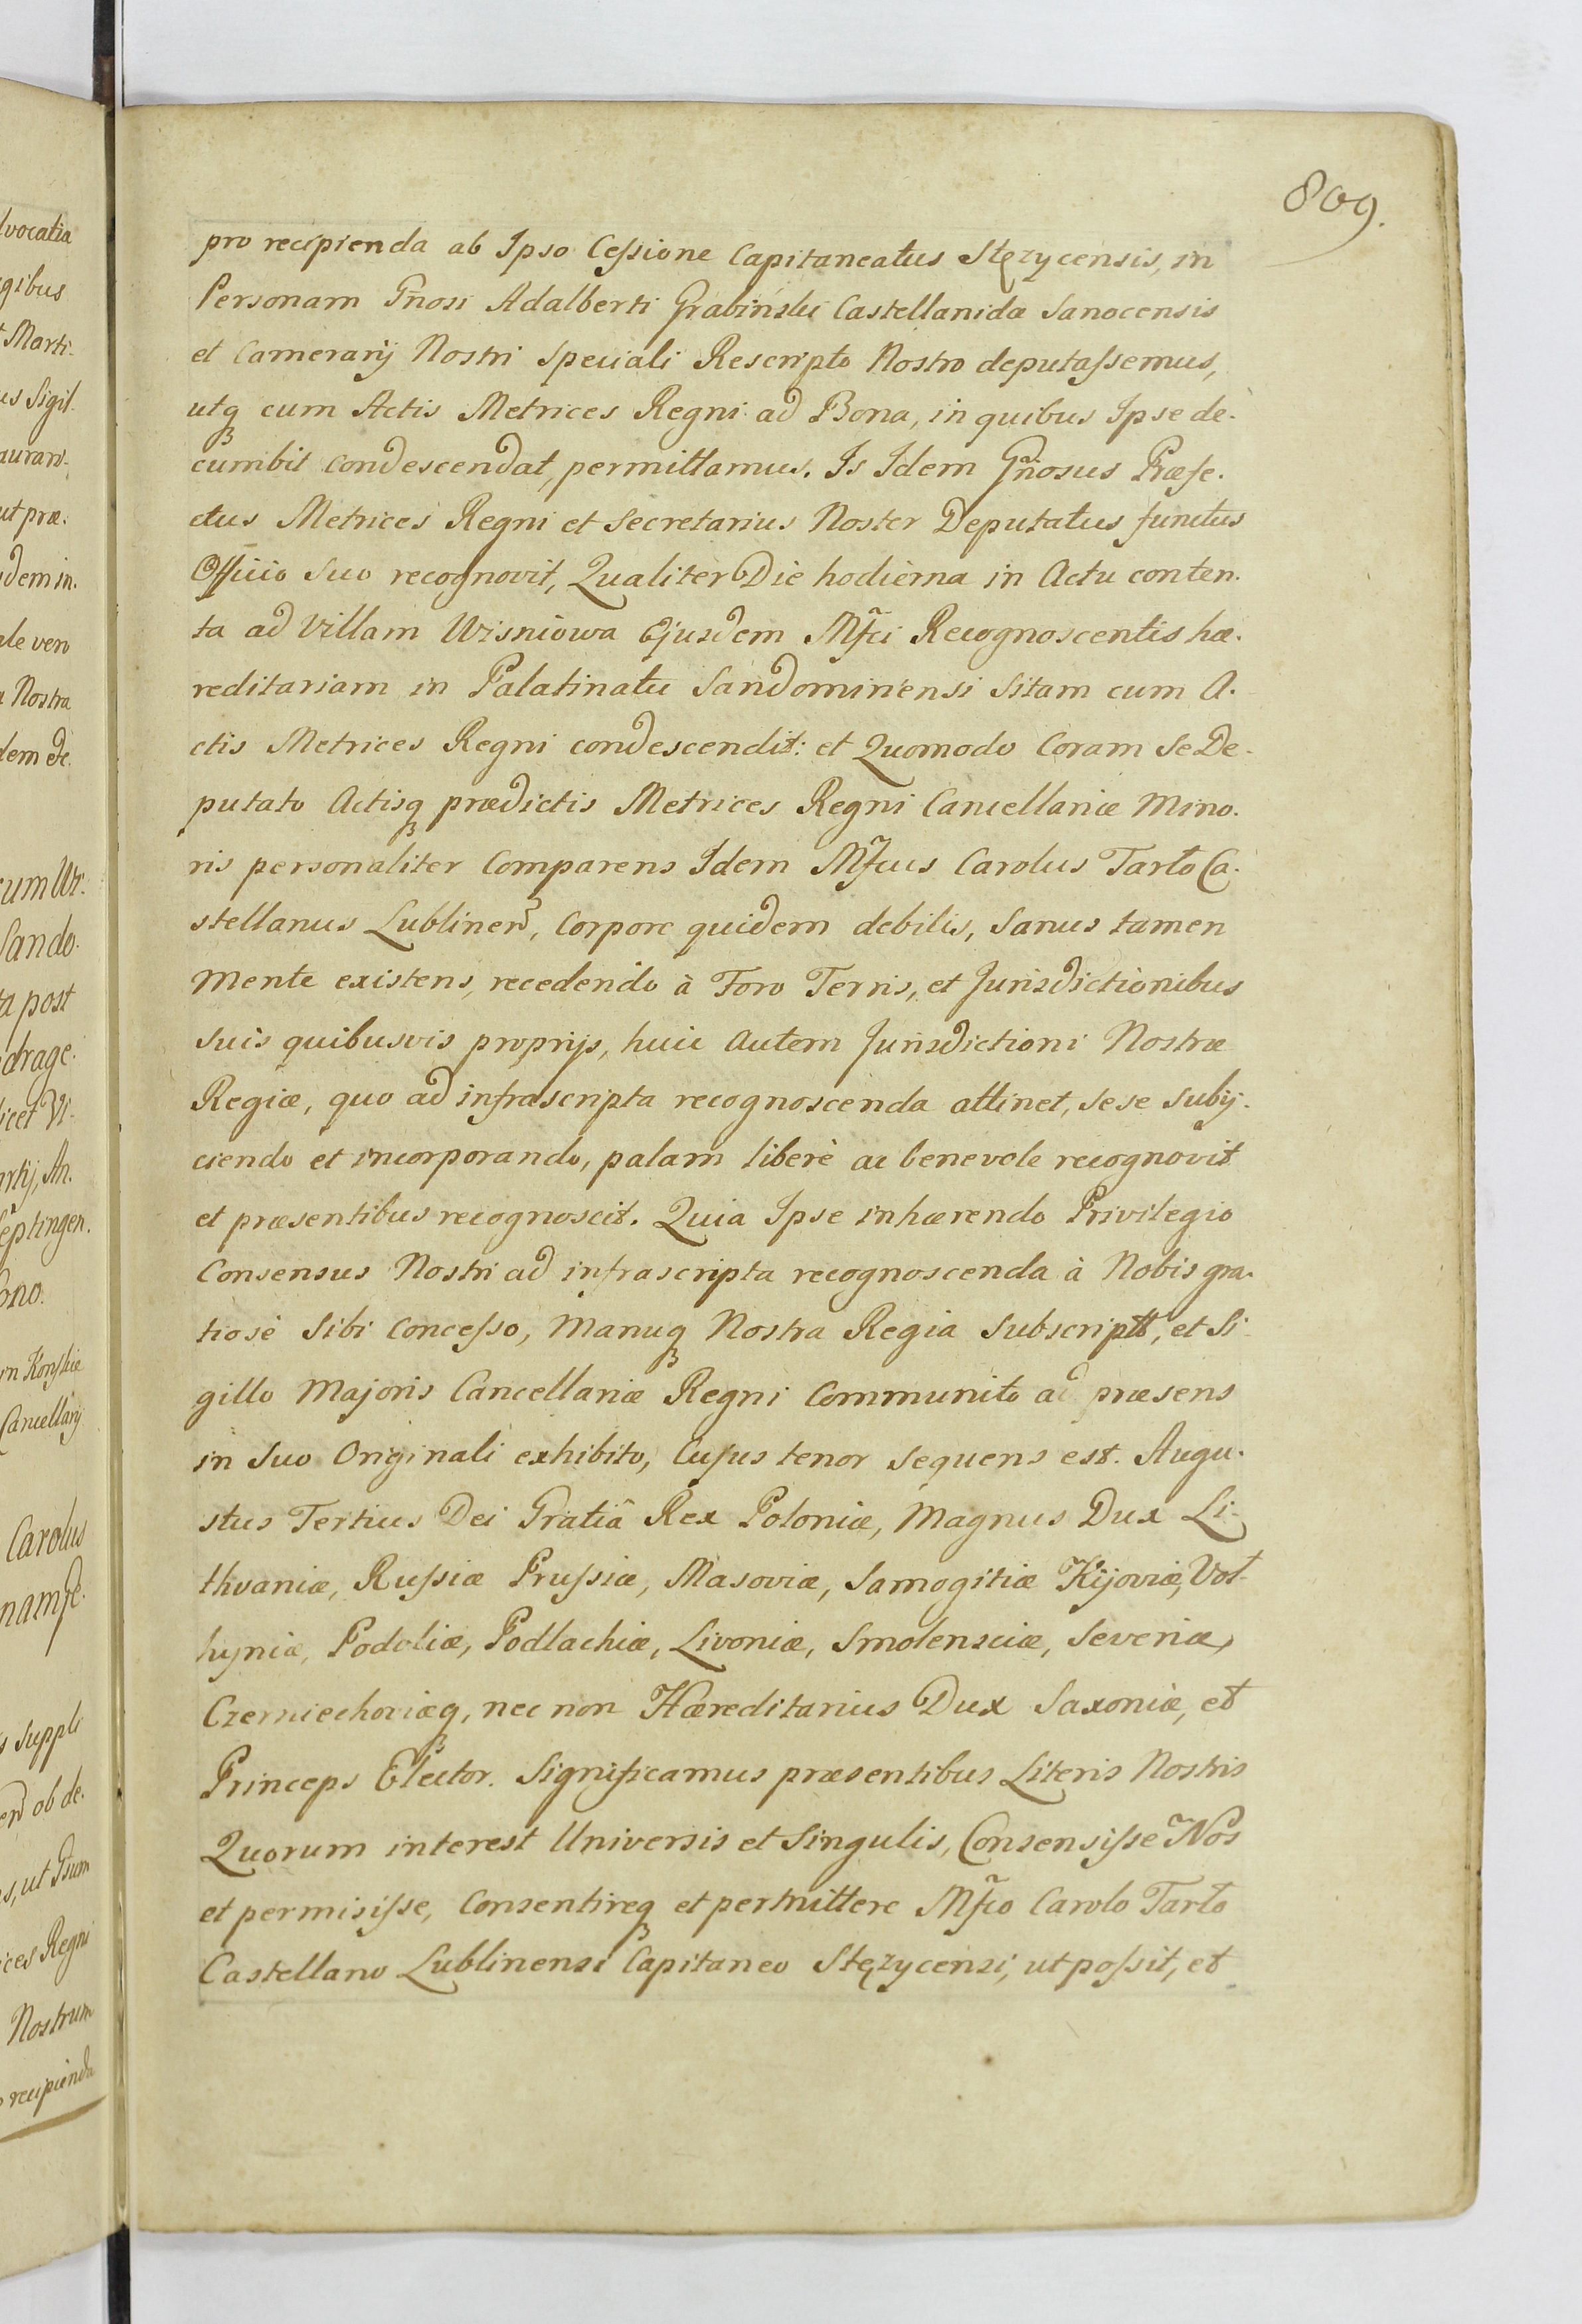 809.
pro recipienda ab Ipso Cessione Capitaneatus Stęzycensis, in
Personam Gnosi Adalberti Grabinski Castellanida Sanocensis
et Camerarij Nostri Speciali Rescripto Nostro deputassemus,
utq cum Actis Metrices Regni ad Bona, in quibus Ipse de-
cumbit condescendat, permittamus. Is Idem Gnosus Præfe-
ctus Metrices Regni et Secretarius Noster Deputatus functus
Officio Suo recognovit, Qualiter Die hodierna in Actu conten-
ta ad Villam Wisniowa Ejusdem Mfci Recognoscentis hæ-
reditariam in Palatinatu Sandomiriensi Sitam cum A-
ctis Metrices Regni condescendit: et Quomodo Coram Se De-
putato Actisq prædictis Metrices Regni Cancellariæ Mino-
ris personaliter Comparens Idem Mfcus Carolus Tarło Ca-
stellanus Lublinen, Corpore quidem debilis, Sanus tamen
Mente existens, recedendo à Foro Terris, et Jurisdictionibus
Suis quibusvis proprijs, huic Autem Jurisdictioni Nostræ
Regiæ, quo ad infrascripta recognoscenda attinet, Sese Subij-
ciendo et incorporando, palam liberè ac benevole recognovit
et præsentibus recognoscit. Quia Ipse inhærendo Privilegio
Consensus Nostri ad infrascripta recognoscenda à Nobis gra-
tiosè Sibi Concesso, Manuq Nostra Regia Subscripto, et Si-
gillo Majoris Cancellariæ Regni Communito ad præsens
in Suo Originali exhibito, Cujus tenor Sequens est. Augu-
stus Tertius Dei Gratiâ Rex Poloniæ, Magnus Dux Li-
thvaniæ, Russiæ Prussiæ, Masoviæ, Samogitiæ Kijoviæ, Vol-
hyniæ, Podoliæ, Podlachiæ, Livoniæ, Smolensciæ, Severiæ,
Czerniechoviæq, nec non Hæreditarius Dux Saxoniæ, et
Princeps Elector. Significamus præsentibus Literis Nostris
Quorum interest Universis et Singulis, Consensisse Nos
et permisisse, Consentireq et permittere Mfco Carolo Tarło
Castellano Lublinensi Capitaneo Stęzycensi, ut possit, et